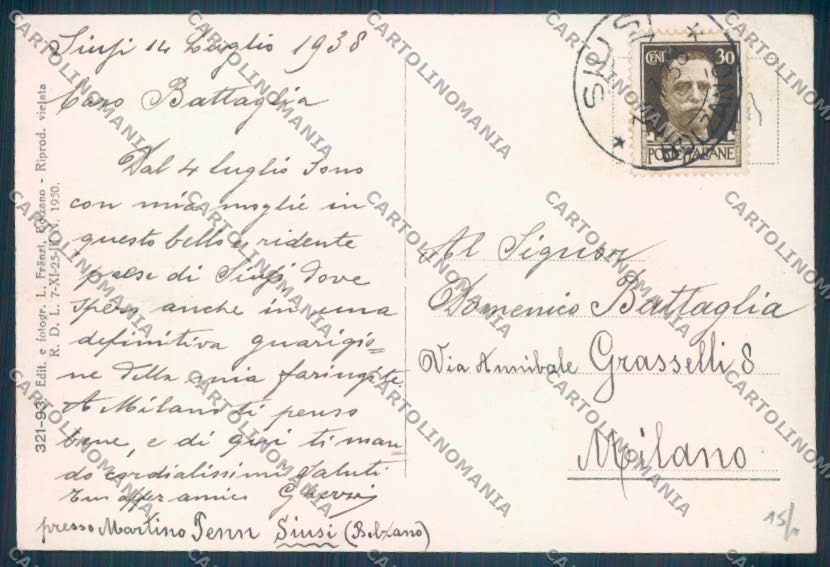 Siusi 14 Luglio 1938
Caro Battaglia
Dal 4 luglio sono
con mia moglie in
questo bello e ridente
paese di Siusi dove
spero anche in una
definitiva guarigio=
ne della mia faringite.
A Milano ti penso
bene, e di qui ti man=
do cordialissimi saluti
Tuo aff amico
presso Martino Jenn Siusi (Bolzano)
321-93 Edit. e fotogr. L. Fränzl, Bolzano - Riprod. vietata
R. D. L. 7-XI-25-II N. 1950.
CENT 30
POSTE ITALIANE
SIUSI
BOLZANO
Al Signor
Domenico Battaglia
Via Annibale Grasselli 8
Milano
15/-
CARTOLINOMANIA